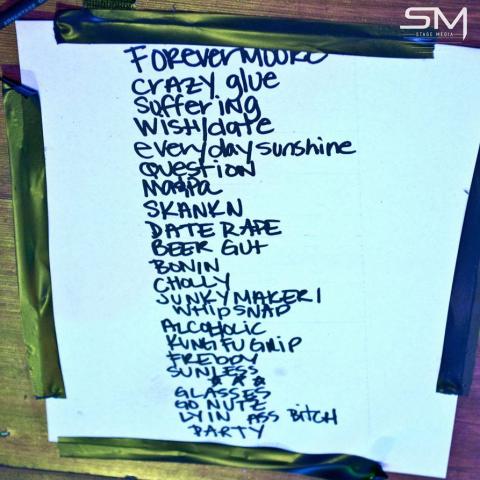 SM
STAGE MEDIA
FOREVERMOORE
CRAZY glue
SUffERiNg
WISH/date
everydaysunshine
QUESTION
MA&PA
SKANKN
DATE RAPE
BEER GUt
BONIN
CHOLLY
JUNKYMAKER1
WHIPSNAP
ALCOHOLIC
KUNG FU GRIP
FREDDY
SUNLESS
☆ ☆ ☆
GLASSES
GO NUTZ
LYIN ASS BitCH
PARTY